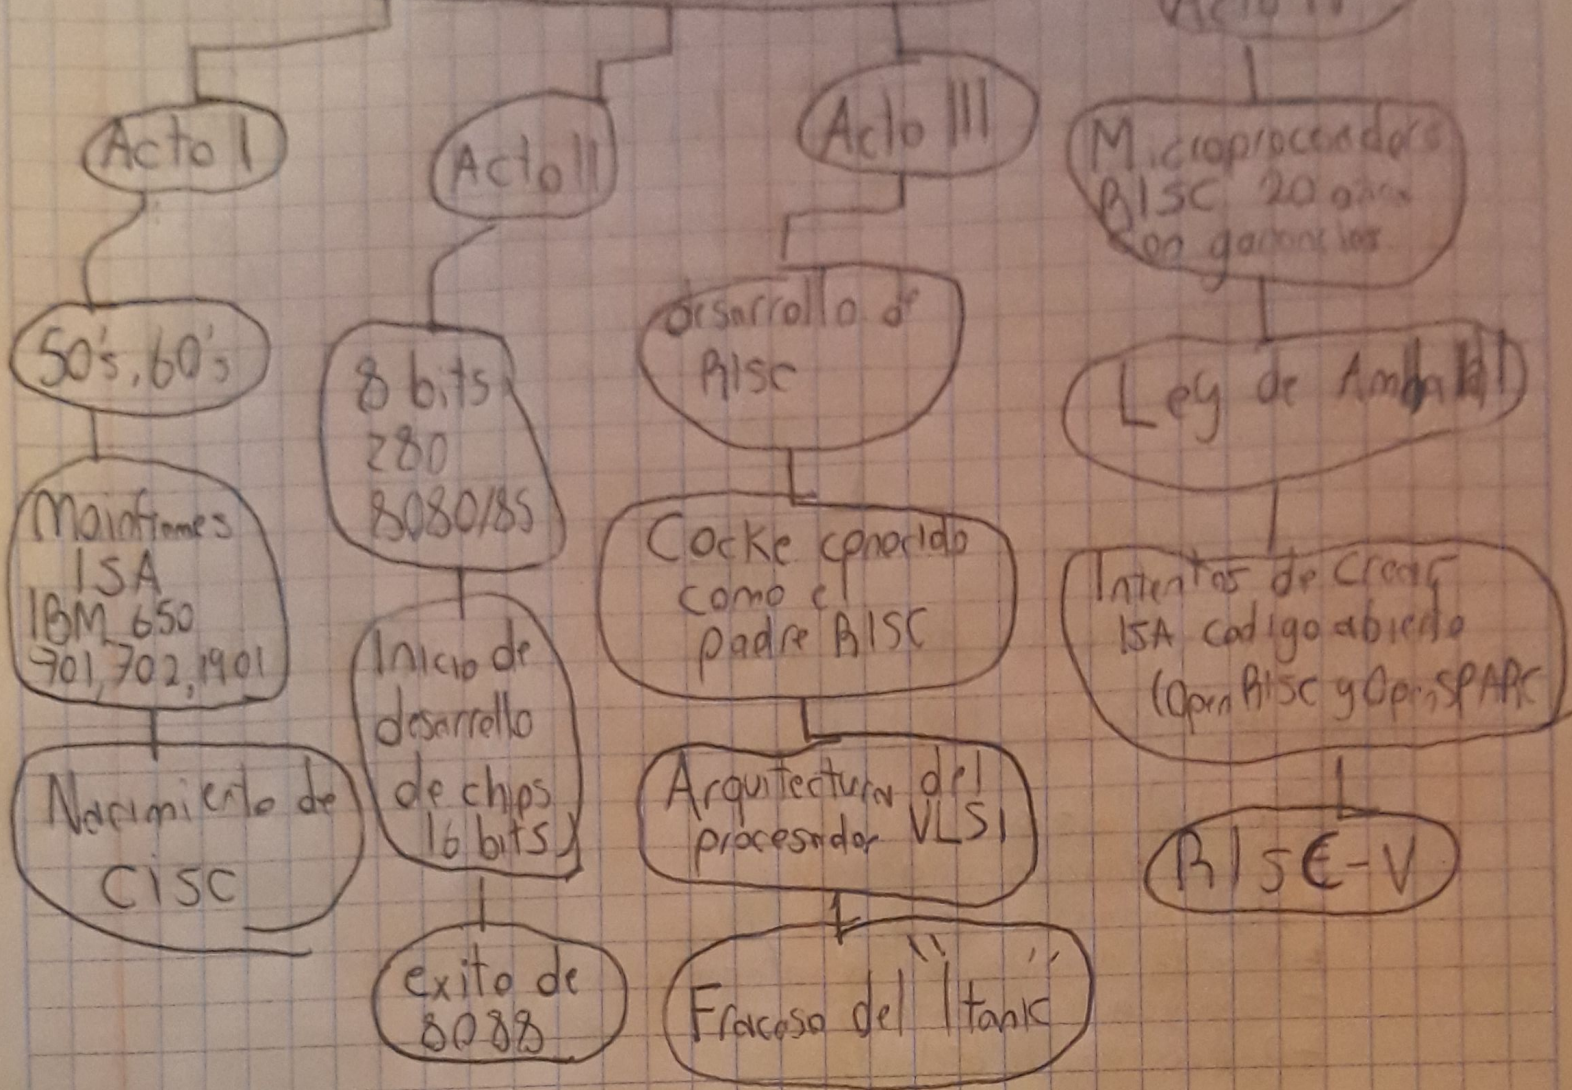 Acto I
50's, 60's
Mainframes
ISA
IBM 650
701, 702, 1401
Nacimiento de
CISC
Acto II
8 bits
Z80
8080/85
Inicio de
desarrollo
de chips
16 bits
exito de
8088
Acto III
desarrollo de
RISC
Cocke conocido
como el
padre RISC
Arquitectura del
procesador VLSI
Fracaso del "Itanic"
Acto IV
Microprocesadores
RISC 20 años
con ganancias
Ley de Amdahl
Intentos de crear
ISA codigo abierto
(Open RISC y OpenSPARC
RISC-V